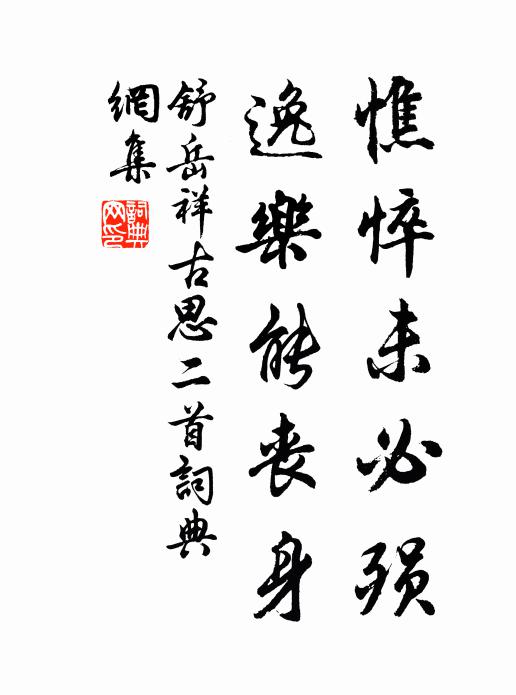 憔悴未必殒
逸樂能丧身
舒岳祥古思二首詞典
網集
詞典網印